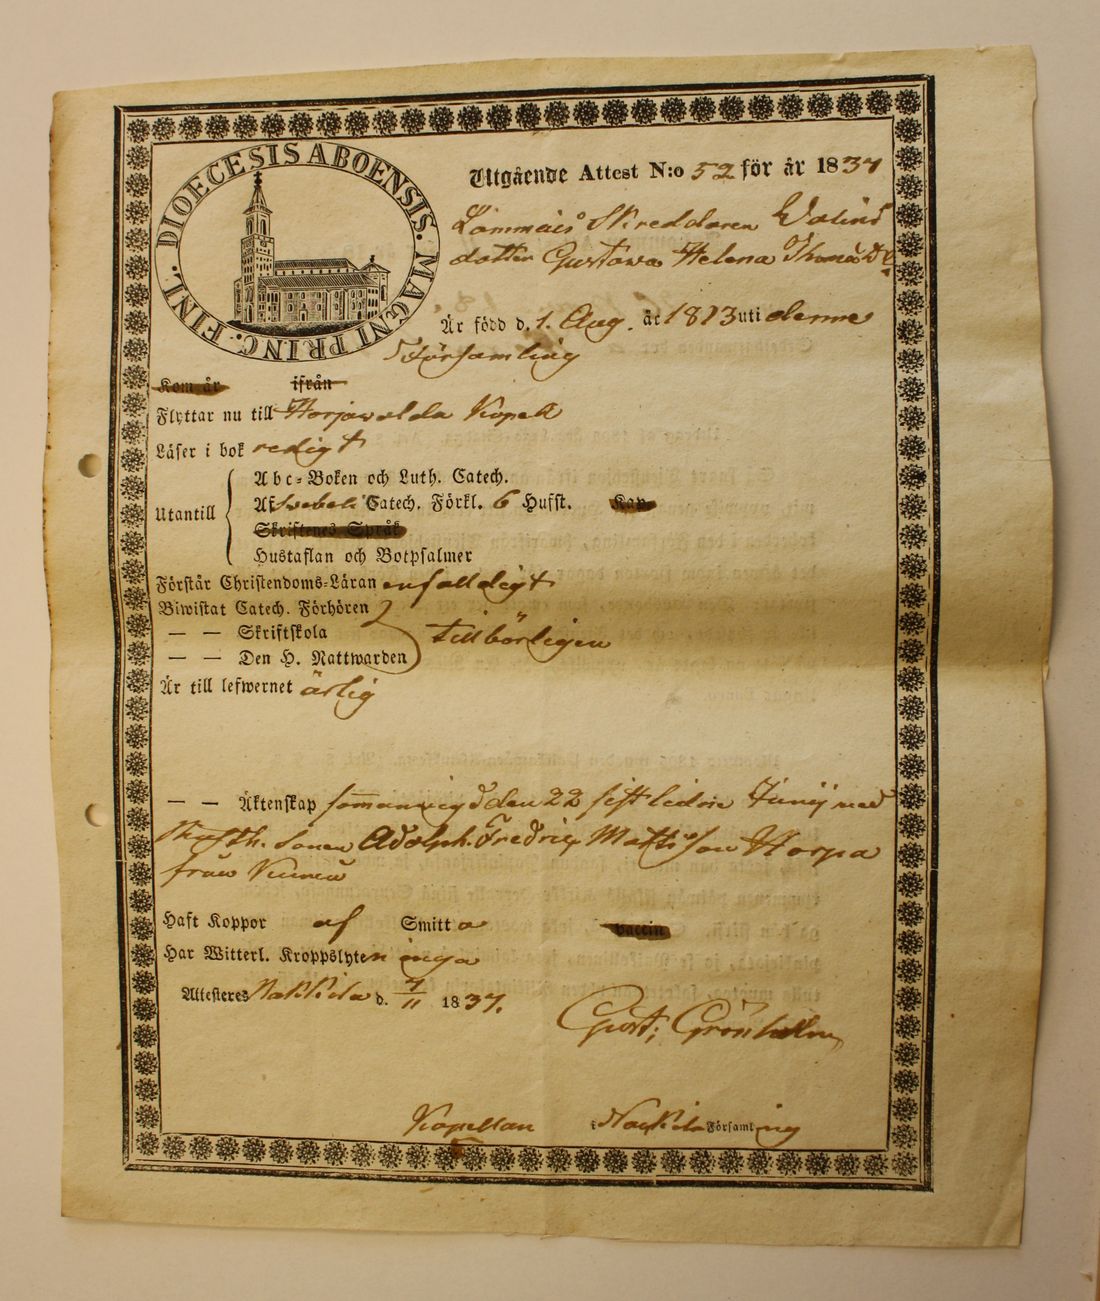 DIOECESIS ABOENSIS. MAGNI PRINC. FINL.
Utgående Attest N:o 52 för år 1837
Skreddaren
dotter Gustava Helena
Är född d. 1. Aug. år 1813 uti denne
Församling
Kom år ifrån
Flyttar nu till Harjawalda Kapell
Läser i bok redigt
Utantill
Abc-Boken och Luth. Catech.
Af Svebeli Catech. Förkl. 6 Hufst. Kap
Skriftenes Språk
Hustaflan och Botpsalmer
Förstår Christendoms-Läran enfalldigt
Biwistat Catech. Förhören
— — Skriftskola tillbörligen
— — Den H. Nattwarden
Är till lefwernet ärlig
— — Äktenskap sammanvigd den 22 sistledne Junij med
sonen Adolph Fredric Mattsson Harpa
från
Haft Koppor af Smitta vaccin
Har Witterl. Kroppslyten inga
Attesteres Nakkila d. 7/11 1837.
Gust: Grönholm
Kapellan i Nakkila Församling